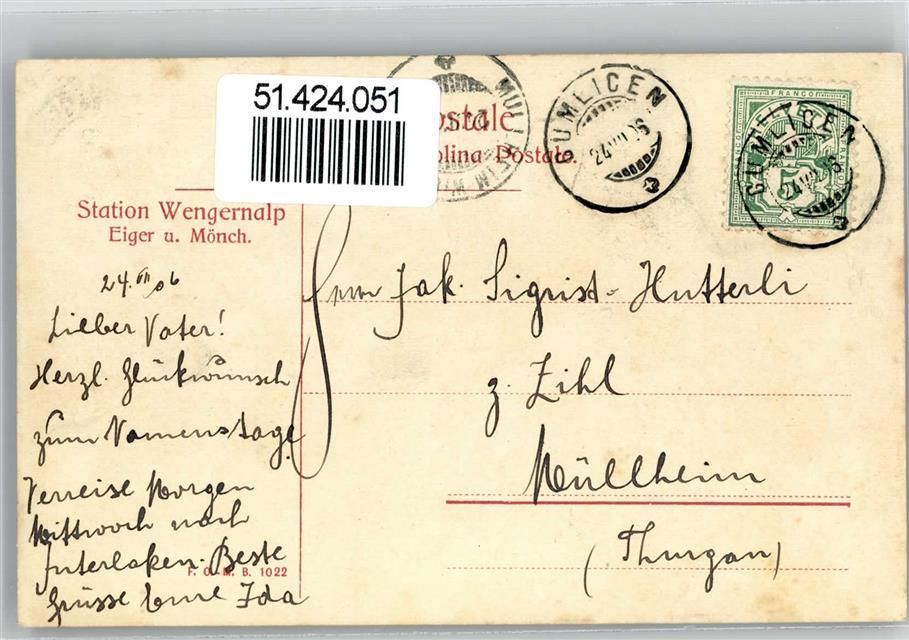 51.424.051
MULLHEIM
GUMLIGEN
24.VII.06
FRANCO
HELVETIA
5
GUMLIGEN
24.VII.06
Postale.
Station Wengernalp
Eiger u. Mönch.
24. VII 06
Lieber Vater!
Herzl. Glückwunsch
zum Namenstage
Verreise Morgen
Mittwoch nach
Interlaken. Beste
F. O. M. B. 1022
Grüsse Eure Ida
Jak. Sigrist-Hutterli
z. Zihl
Müllheim
(Thurgau)